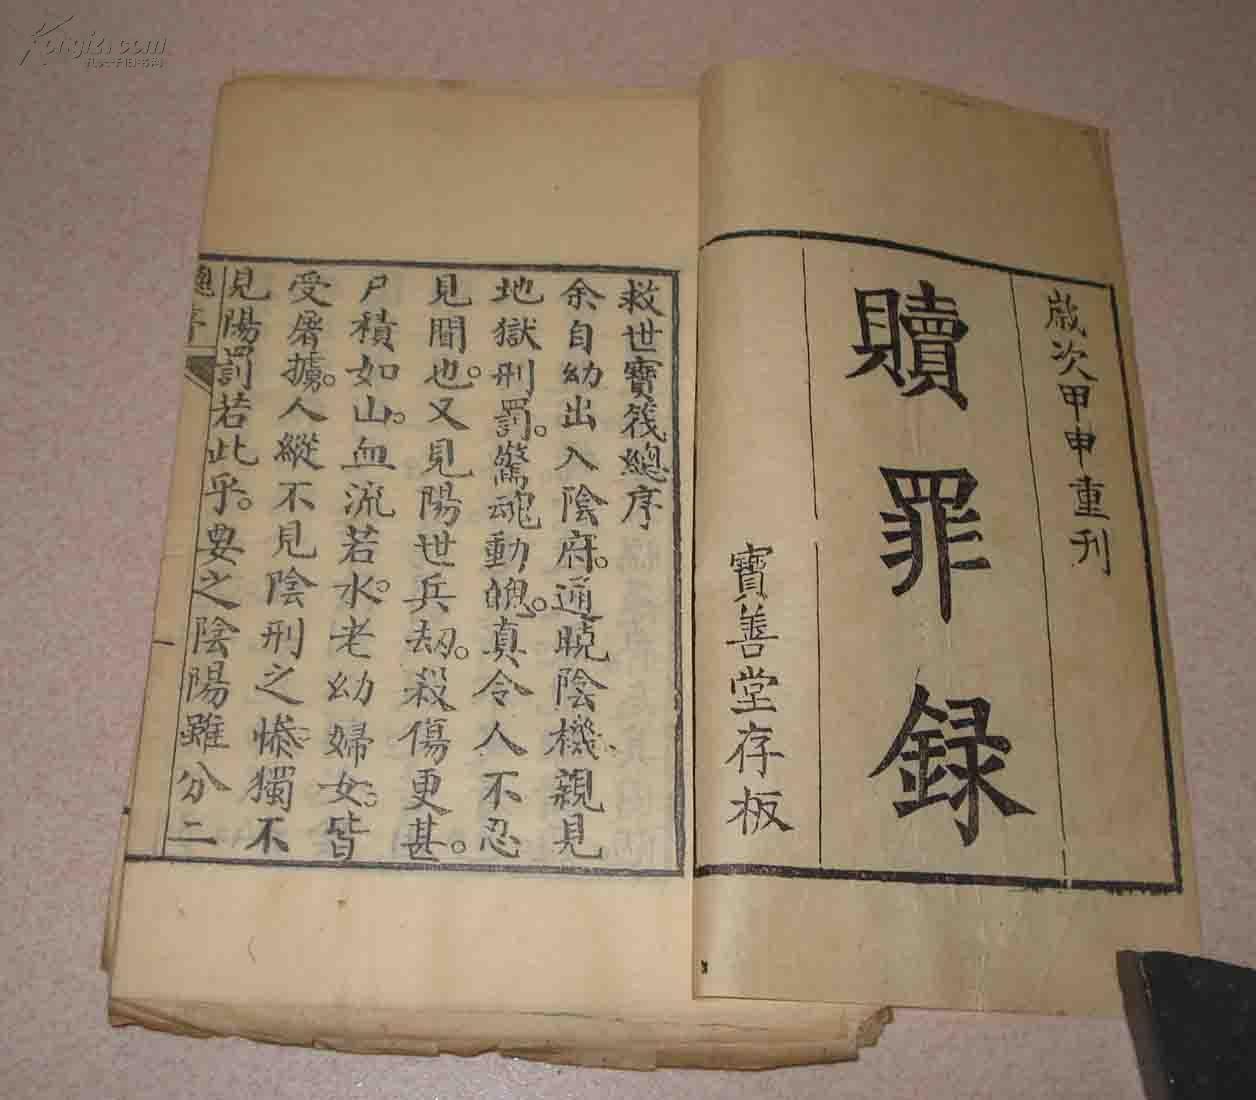 歲次甲申重刊
贖罪録
寶善堂存板
救世寶筏總序
余自幼出入陰府。通曉陰機。親見
地獄刑罰。驚魂動魄。真令人不忍
見聞也。又見陽世兵刼。殺傷更甚。
尸積如山。血流若水。老幼婦女。皆
受屠擄。人縱不見陰刑之慘。獨不
見陽罰若此乎。要之陰陽雖分二
總序
Kongfz.com
孔夫子旧书网